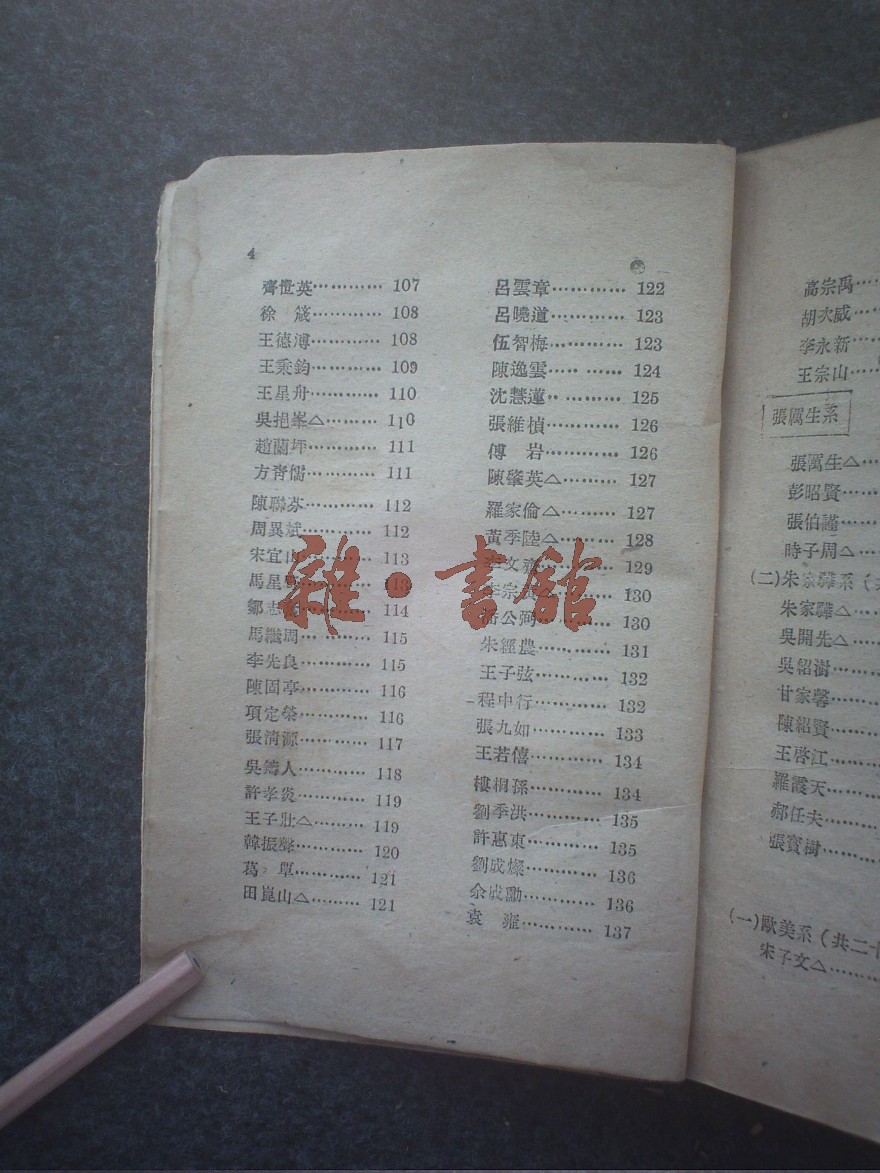 4
齊世英………… 107
徐 箴………… 108
王德溥………… 108
王秉鈞………… 109
王星舟………… 110
吳挹峯△……… 110
趙蘭坪………… 111
方青儒………… 111
陳聯芬………… 112
周異斌………… 112
宋宜山………… 113
馬星野………… 113
鄒志 114
馬繼周………… 115
李先良………… 115
陳固亭………… 116
項定榮………… 116
張清源………… 117
吳鑄人………… 118
許孝炎………… 119
王子壯△……… 119
韓振聲………… 120
葛 覃………… 121
田崑山△……… 121
呂雲章………… 122
呂曉道………… 123
伍智梅………… 123
陳逸雲………… 124
沈慧蓮………… 125
張維楨………… 126
傅 岩………… 126
陳肇英△……… 127
羅家倫△……… 127
黃季陸△……… 128
李文齋………… 129
李宗 130
潘公弼………… 130
朱經農………… 131
王子弦………… 132
程中行………… 132
張九如………… 133
王若僖………… 134
樓桐孫………… 134
劉季洪………… 135
許惠東………… 135
劉成燦………… 136
余成勳………… 136
袁 雍………… 137
雜·書館
高宗禹……
胡次威……
李永新……
王宗山……
張厲生系
張厲生△……
彭昭賢……
張伯謹……
時子周△……
(二)朱家驊系(共
朱家驊△……
吳開先△……
吳紹澍……
甘家馨……
陳紹賢……
王啓江……
羅霞天……
郝任夫……
張寶樹……
(一)歐美系(共二十
宋子文△……